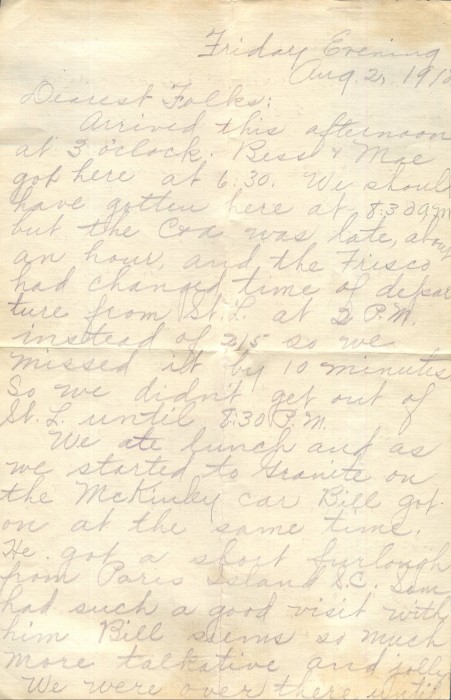 Friday Evening
Aug. 2, 191
Dearest Folks:
Arrived this afternoon
at 3 o'clock. Bess & Mae
got here at 6:30. We should
have gotten here at 8:30 a.m.
but the C & A was late, about
an hour, and the Frisco
had changed time of depar
ture from St. L. at 2 P.M.
instead of 2:15 so we
missed it by 10 minutes
So we didn't get out of
St. L. until 8:30 P.M.
We ate lunch and as
we started to Granite on
the McKinley car Bill got
on at the same time.
He got a short furlough
from Paris Island S.C.
had such a good visit with
him Bill seems so much
more talkative and jolly
We were over there until